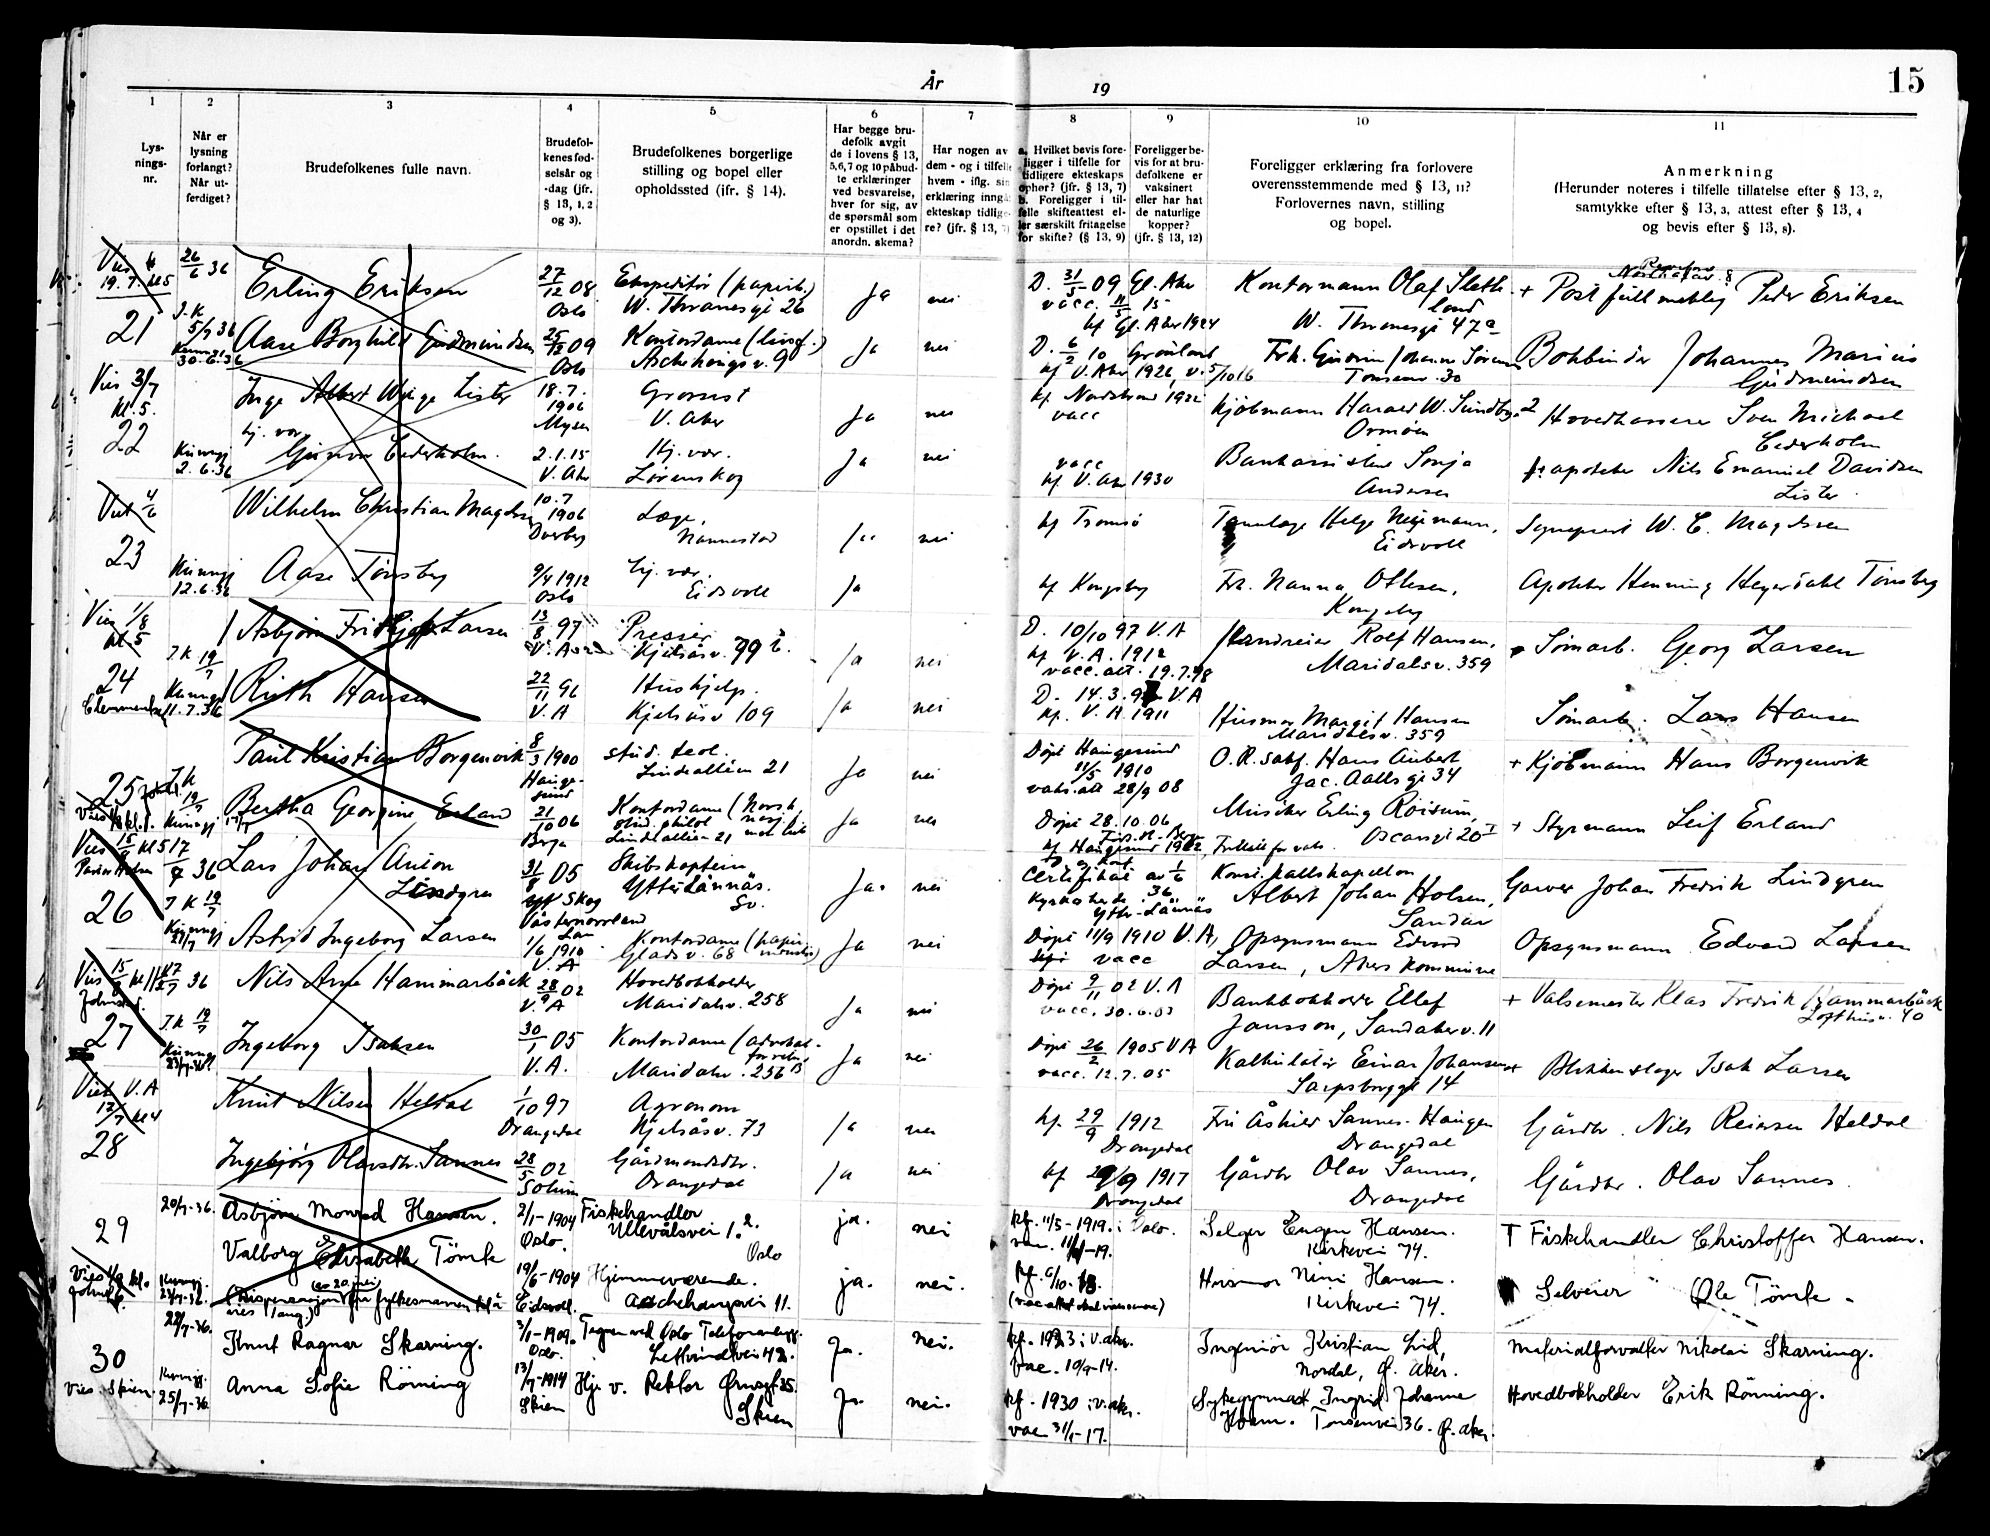 År 19 15
1 2 3 4 5 6 7 8 9 10 11
Lys-
nings-
nr.
Når er
lysning
forlangt?
Når ut-
ferdiget?
Brudefolkenes fulle navn.
Brudefol-
kenes fød-
selsår og
-dag (jfr.
§ 13, 1, 2
og 3).
Brudefolkenes borgerlige
stilling og bopel eller
opholdssted (jfr. § 14).
Har begge bru-
defolk avgit
de i lovens § 13,
5,6,7 og 10 påbud-
te erklæringer
ved besvarelse,
hver for sig, av
de spørsmål som
er opstillet i det
anordn. skema?
Har nogen av
dem - og i tilfelle
hvem - iflg. sin
erklæring inngå
ekteskap tidlige
re? (jfr. § 13, 7)
a. Hvilket bevis fore-
ligger i tilfelle for
tidligere ekteskaps
ophør? (jfr. § 13, 7)
b. Foreligger i til-
felle skifteattest el-
ler særskilt fritagelse
for skifte? (§ 13, 9)
Foreligger be-
vis for at bru-
defolkene er
vaksinert
eller har hat
de naturlige
kopper?
(jfr. § 13, 12)
Foreligger erklæring fra forlovere
overensstemmende med § 13, 11?
Forlovernes navn, stilling
og bopel.
Anmerkning
(Herunder noteres i tilfelle tillatelse efter § 13, 2,
samtykke efter § 13, 3, attest efter § 13, 4
og bevis efter § 13, 8).
19.7. kl 5
21
26/6 36
Erling Eriksen
27/12 08
Oslo
Ekspeditør (papirb.)
W. Thranesgt 26
Ja
nei
D. 31/5 09 Gl. Aker
vacc. 11/5 15
kf Gl. Aker 1924
Kontormann Olaf Sleth
land
W. Thranesgt 47a
+ Postfullmektig Peder Eriksen
J.K
5/7 36
Kunngj
30.6.36
Aase Borghild Gudmundsen
25/12 09
Oslo
Kontordame (
Aschehougs v. 9
Ja
nei
D. 6/2 10 Grønland
kf V. Aker 1926, v. 5/10 16
Frk. Gudrun Johanne Sørensen
Tonsenv. 30
Bokbinder Johannes Marius
Gudmundsen
Vies 3/7
kl. 5.
22
Inge Albert Winge Lister
18.7.
1906
Mysen
Grossist
V. Aker
Ja
nei
kf. Nordstrand 1922
vacc
Kjøbmann Harald W. Sundby
Ormøen
Hovedkasserer Sven Michael
Cederholm
Kunngj
2.6.36
hj. vær
Gunvor Cederholm.
2.1.15
V. Aker
Hj. vær.
Lørenskog
Ja
nei
vacc
kf V. Aker 1930
Bankassistent Sonja
Andersen
apoteker Nils Emanuel Davidsen
Lister
Viet 4/6
23
Wilhelm Christian Magelssen
10.7
1906
Læge,
Nannestad
Ja
nei
kf Tromsø
Tannlæge Helge Neumann,
Eidsvoll
Sogneprest W. C. Magelssen
Kunngj
12.6.36
Aase Tønsberg
9/4 1912
Oslo
hj. vær.
Eidsvoll
Ja
kf Kongsberg
Frk. Nanna Ottesen,
Kongsberg
Apoteker Henning Hegerdahl Tønsberg
Vies 1/8
kl 5
24
Asbjørn Fridtjof Larsen
13/8 97
V. Aker
Presser
Kjelsåsv. 99 b.
Ja
nei
D. 10/10 97 V.A
kf V.A. 1912
vacc. att. 19.7.98
Handreier Rolf Hansen,
Maridalsv. 359
Sömarb. Georg Larsen
J.K 19/7
Kunngj
11.7.36
Ruth Hansen
22/11 96
V.A
Hushjelp.
Kjelsåsv 109
Ja
nei
D. 14.3.97 V.A
kf. V.A. 1911
Husmor Margit Hansen
Maridalsv. 359
Sömarb. Lars Hansen
25
Paul Kristian Borgenvik
8/3 1900
Hauge-
sund
stud. teol.
Lindealléen 21
Ja
nei
Døpt Haugesund
11/5 1910
vaks. att 28/9 08
O.R. sakf. Hans Aubert
Jac. Aalls gt 34
+ Kjøbmann Hans Borgenvik
J.K
19/7
Kunngj 17/7
Bertha Georgine Erland
21/10 06
Kontordame (Norsk
stud. philol
Lindealléen 21
Ja
nei
Døpt 28.10.06
kf Haugesund 1922,
Musiker Erling Roisum,
Oscarsgt 20 I
+ Styrmann Leif Erland
Vies 15/8 kl 5
26
17/7 36
Lars Johan Anton
Lindgren
31/8 05
Ytt Skog
Västernorrland
Län
Skibskaptein
Ytterlännäs.
Sv.
Ja.
nei
Certifikat av 1/6 36
Kyrkoherde
Ytter-Lännäs
Konst. kallskapellan
Albert Johan Holsen,
Sandar
Garver Johan Fredrik Lindgren
J K 19/7
Kunngj
21/7
Astrid Ingeborg Larsen
1/6 1910
V. A
Kontordame (papir
Glads v. 68
Ja
nei
Døpt 11/9 1910 V.A,
vacc
Opsynsmann Edvard
Larsen, Akers kommune
Opsynsmann Edvard Larsen
Vies 15/8 kl
27
17/7 36
Nils Arne Hammarbäck
28/9 02
V. A
Hovedbokholder
Maridalsv. 258
Ja
nei
Døpt 9/11 02 V.A
vacc. 30.6.03
Bankbokholder Ellef
Jansson, Sandakerv. 11
+ Valsemester Klas Fredrik Hammarbäck
Lofthusv. 40
J.K 19/7
Kunngj
23/7-36
Ingeborg Isaksen
30/1 05
V.A.
Kontordame (advokat-
forretn.
Maridalsv. 256 B
Ja
nei
Døpt 26/2 1905 V A
vacc. 12.7.05
Kalkulatør Einar Johansen
Sarpsborggt 14
+ Blikkenslager Isak Larsen
Viet V.A
12/7 kl 4
28
Knut Nilsen Heldal
1/10 97
Drangedal
Agronom
Kjelsåsv. 73
Ja
nei
kf. 29/9 1912
Drangedal
Fru Åshild Sannes-Haugen
Drangedal
Gårdbr. Nils Reiersen Heldal
Ingebjørg Olavsdtr. Sannes
28/5 02
Solum
Gårdmannsdtr.
Drangedal
Ja
nei
kf 29/9 1917
Drangedal
Gårdbr Olav Sannes,
Drangedal
Gårdbr. Olav Sannes
29
20/7-36.
Asbjørn Monrad Hansen.
2/1-1904
Oslo.
Fiskehandler
Ullevålsvei 12.
Oslo
ja.
nei
kf. 11/5-1919. i Oslo.
Selger Eugen Hansen.
Kirkevei 74.
Fiskehandler Christoffer Hansen.
Kunngj.
23/7-36.
Valborg Elisabeth Tömte
19/6-1904
Eidsvoll.
Hjemmeværende.
Aschehougsvei 11.
ja.
nei.
kf. 6/10-18.
Husmor Nini Hansen.
Kirkevei 74.
Selveier Ole Tömte
30
22/7-36.
Knut Ragnar Skarning.
3/1-1909.
Oslo.
Tegner ved Oslo Telefonanlegg.
Lettvindtvei 42.
Ja.
nei.
kf. 1923 i V. Aker.
vac. 10/9-14.
Ingeniør Kristian Lid,
Nordal, Ø. Aker.
Materialforvalter Nikolai Skarning.
Vies. Skien
Kunngj.
25/7-36.
Anna Sofie Rönning
13/7-1914
Skien
Hj. v. Rektor Ørnsgt 25.
Skien
Ja.
nei.
kf. 1930 i V. Aker.
vac 31/1-17.
Sykegymnast Ingrid Johanne
Hoem. Tonsenvei 36. Ø. Aker.
Hovedbokholder Erik Rönning.